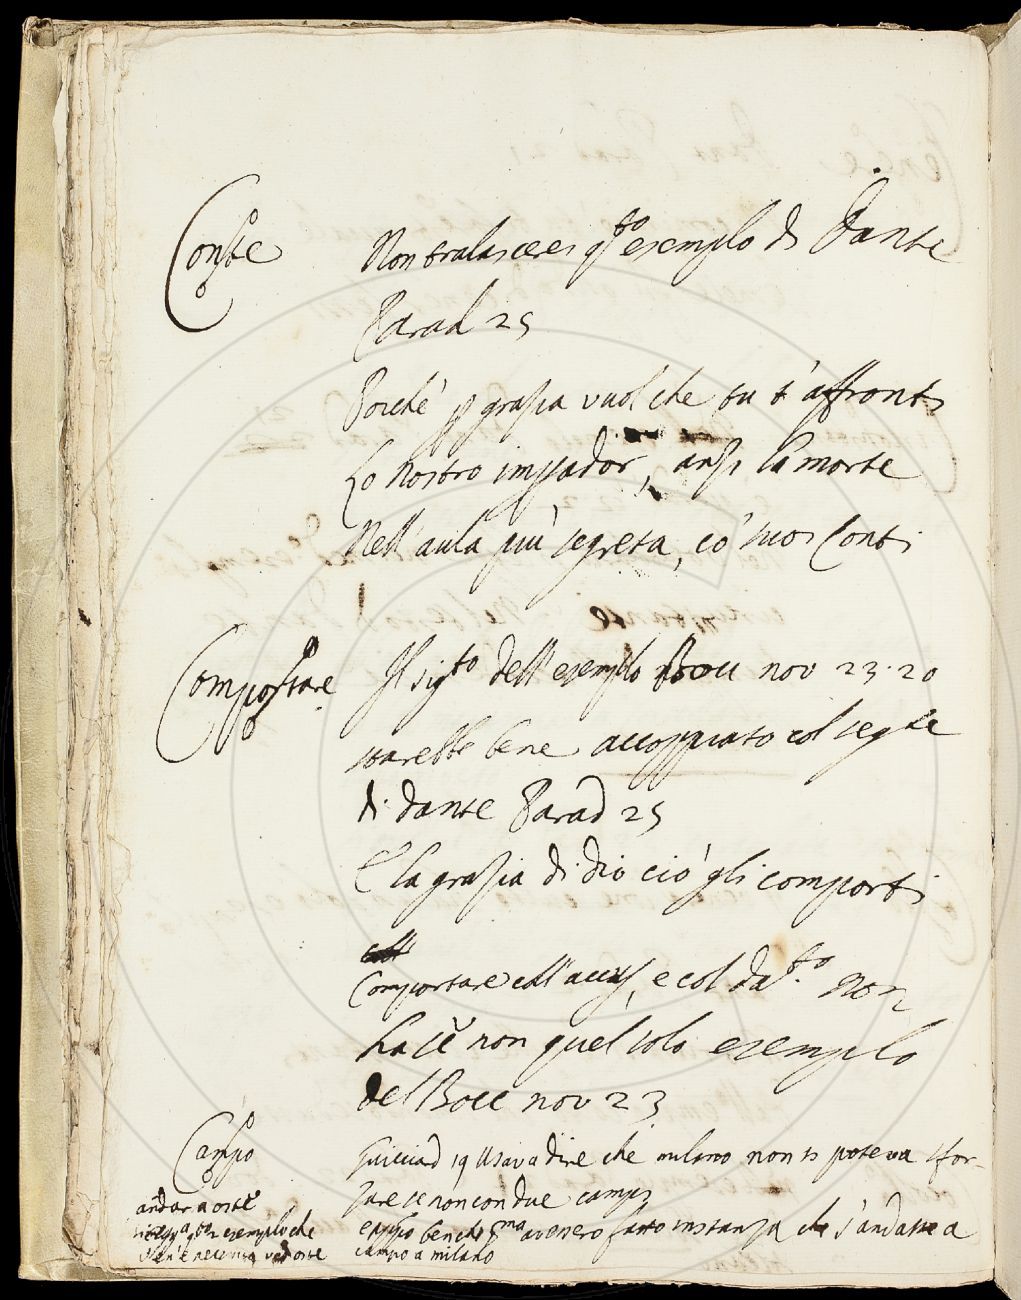 Conte
Non tralascerei q.to esempio di Dante
Parad 25
Poiché p grazia vuol che tu t'affronti
Lo nostro impador, anzi la morte
Nell'aula più segreta, co' suoi Conti
Comportare
Il sig.to dell'esempio Bocc nov 23.20
starebbe bene accoppiato col seg.te
di Dante Parad 25
E la grazia di dio ciò gli comporti
Comportare coll'accus, e col dat.o non
ha se non quel solo esempio
del Bocc nov 23
Campo
Guicciard 19 usava dire che milano non si poteva sfor-
zare se non con due campi
e appo benché p.ma avesero fatto instanza che s'andasse a
campo a milano
andar a oste
esemplo che
vedi oste